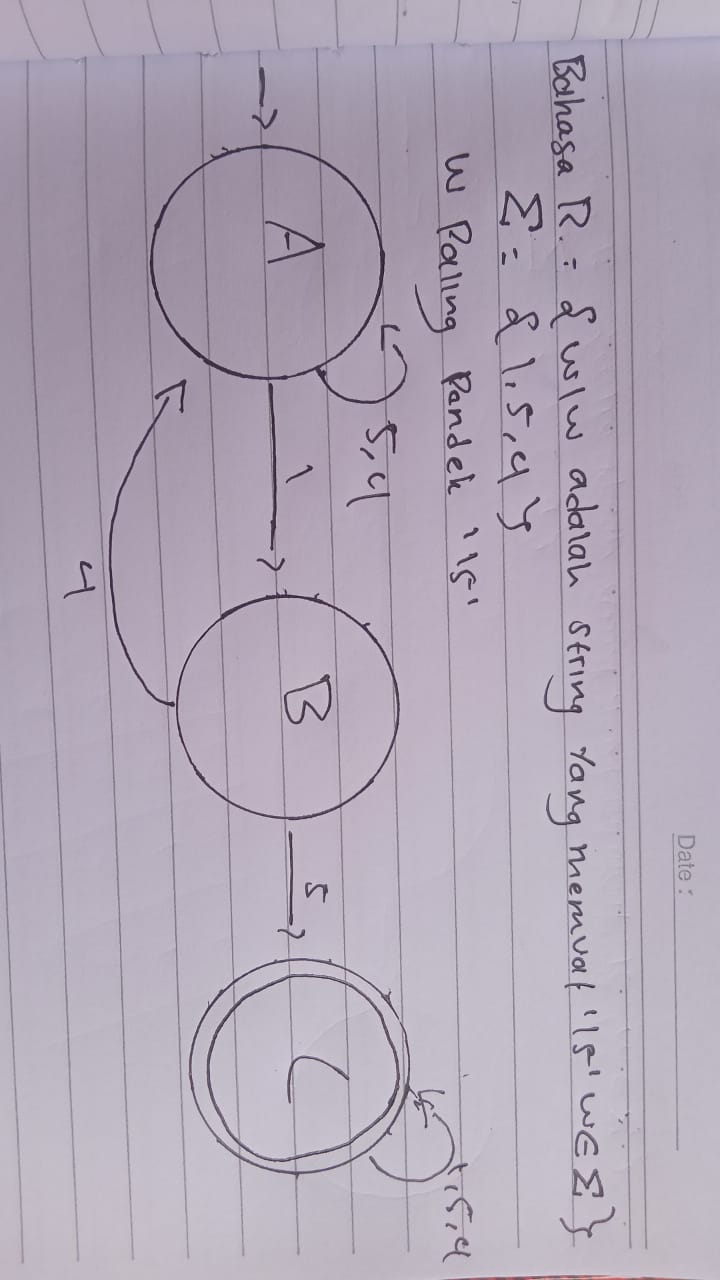 Date :
Bahasa R. = { w|w adalah string yang memuat '15' w∈Σ }
Σ = { 1, 5, 4 }
w Paling Pandek '15'
1, 5, 4
5, 4
A
1
B
5
C
4